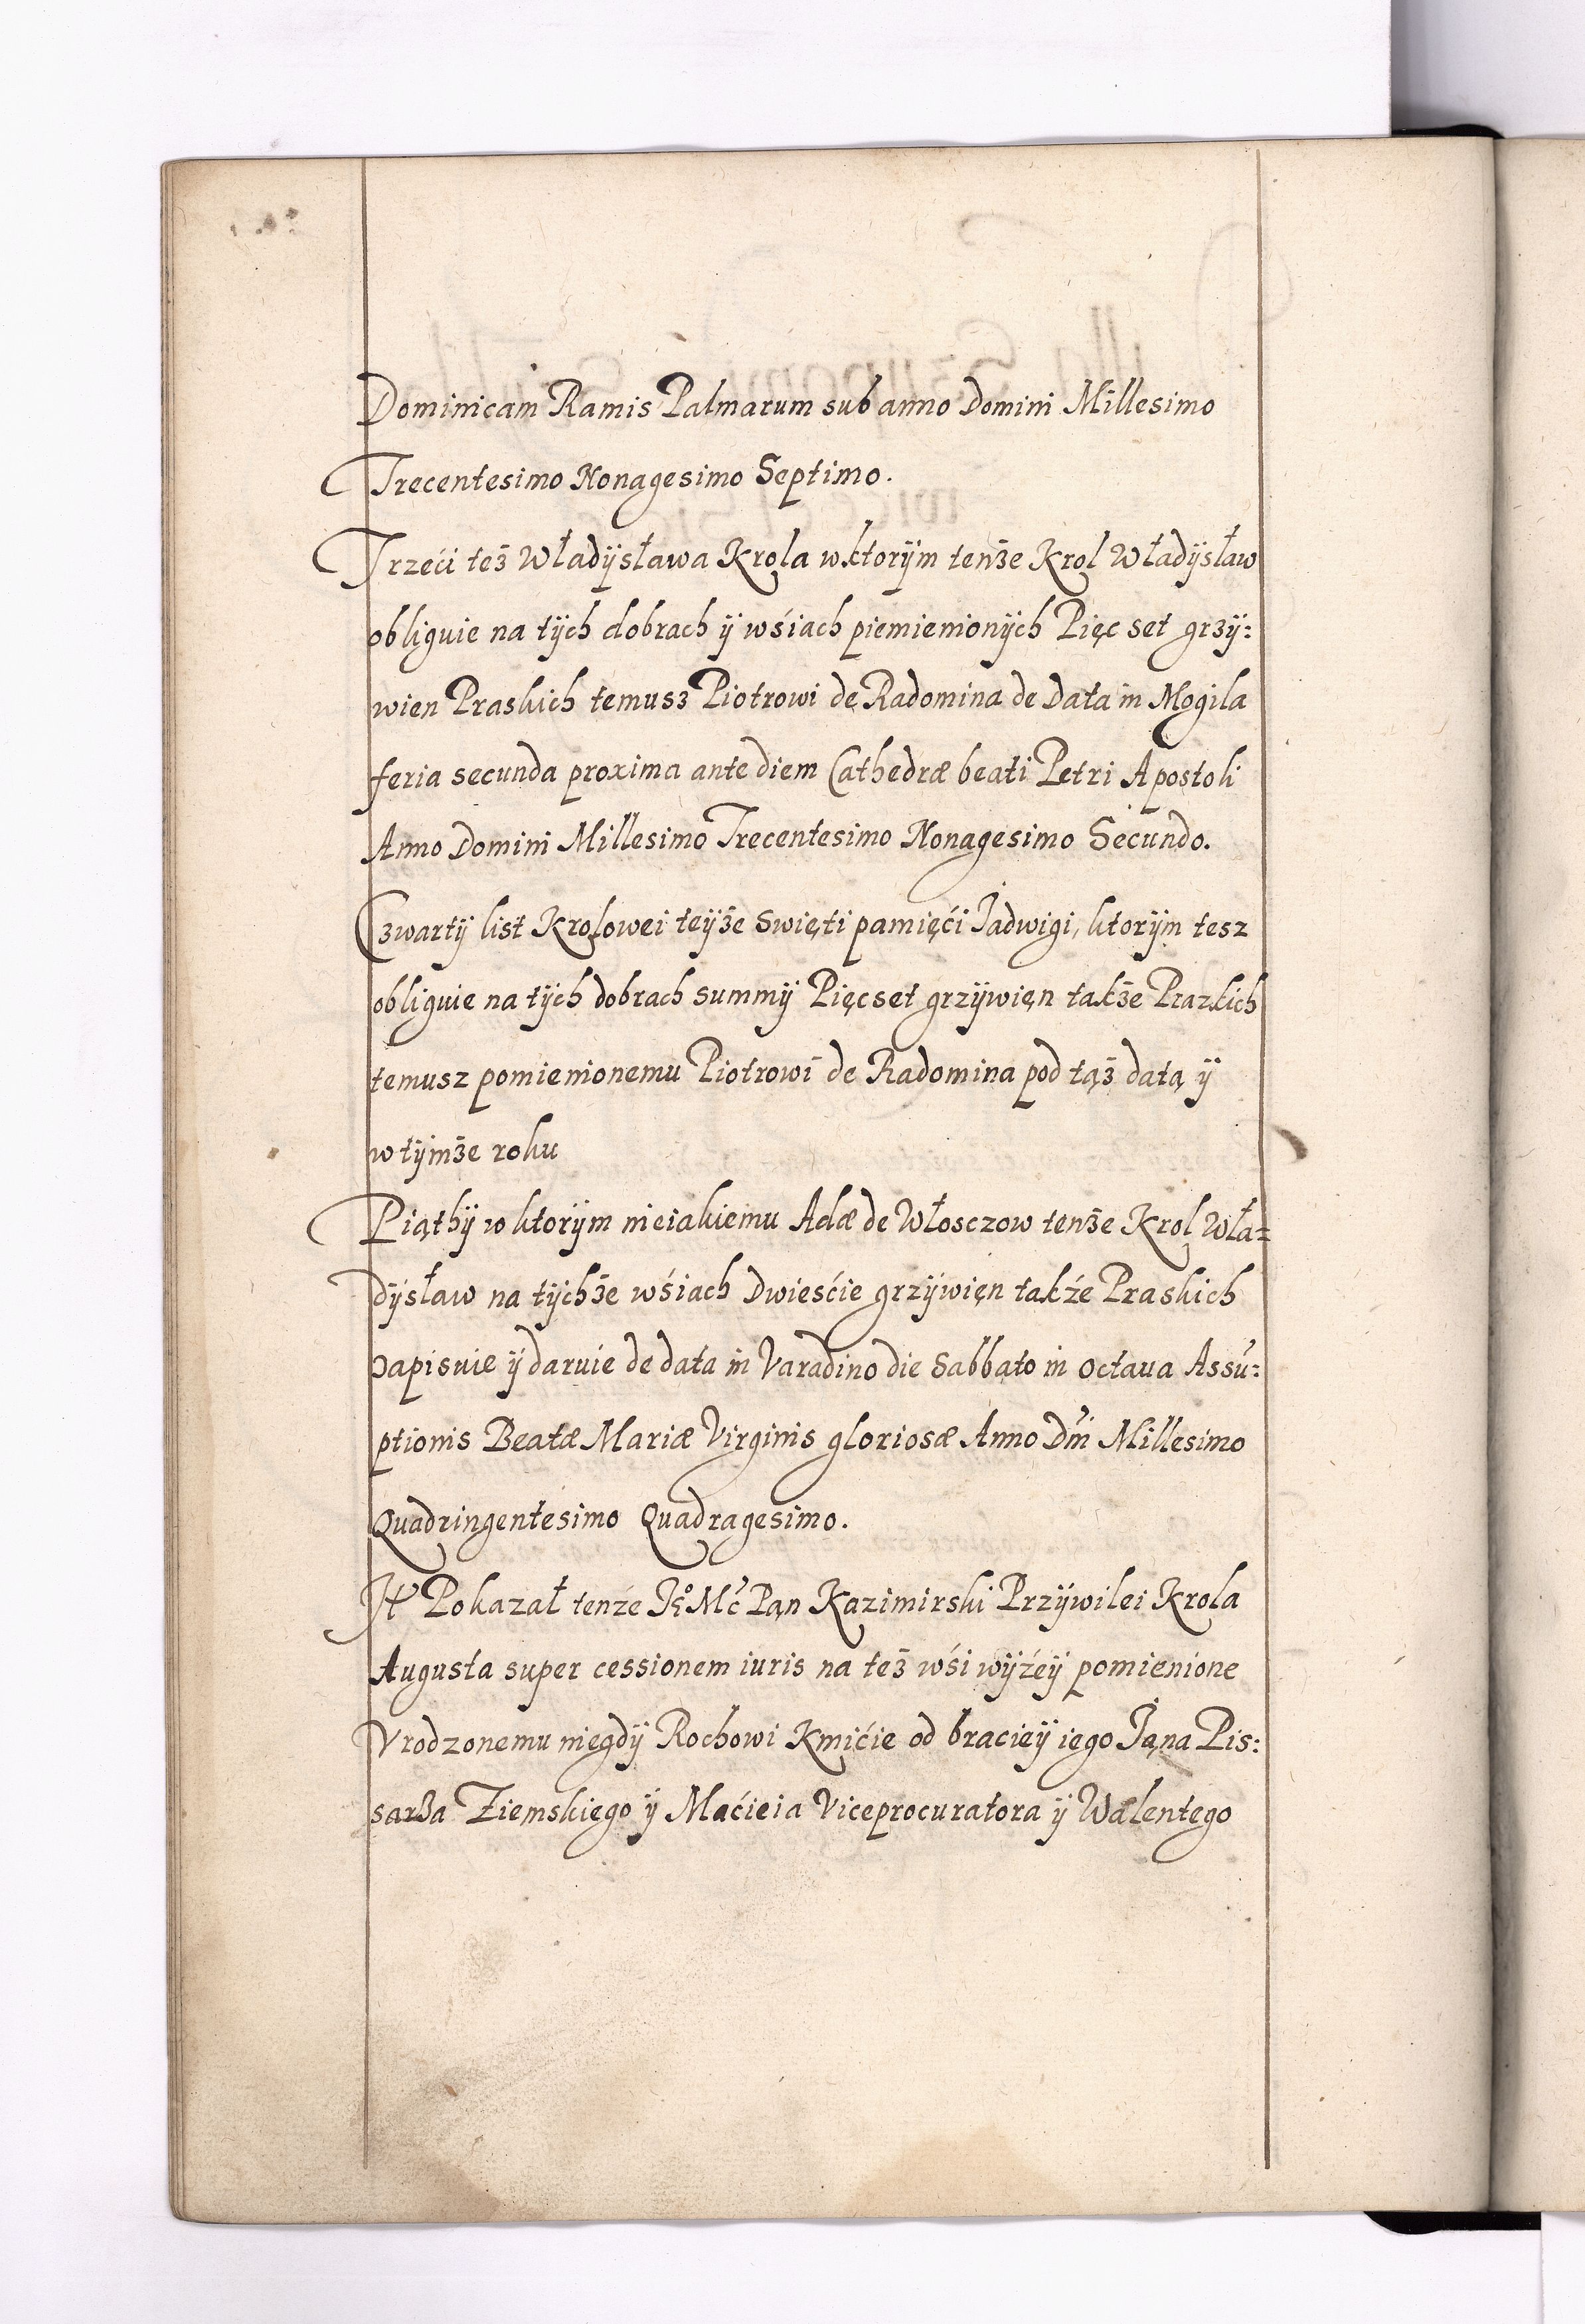 Dominicam Ramis Palmarum sub anno Domini Millesimo
Trecentesimo Nonagesimo Septimo.
Trzeći też Władÿsława Krola w ktorÿm tenże Krol Władÿsław
obliguie na tÿch dobrach ÿ wśiach piemienionÿch Pięc set grzÿ:
wien Praskich temusz Piotrowi de Radomina de Data in Mogila
feria secunda proxima ante diem Cathedræ beati Petri Apostoli
Anno Domini Millesimo Trecentesimo Nonagesimo Secundo.
Czwartÿ list Krolowei teÿże Swięti pamięći Jadwigi, ktorÿm tesz
obliguie na tÿch dobrach summÿ Pięcset grzÿwięn także Prazkich
temusz pomienionemu Piotrowi de Radomina pod tąż datą ÿ
w tÿmże roku
Piąthÿ w ktorÿm nieiakiemu Adæ de Włosczow tenże Krol Wła=
dÿsław na tÿchże wśiach Dwieśćie grzÿwięn także Praskich
zapisuie ÿ daruie de data in Varadino die Sabbato in octaua Assu:
ptionis Beatæ Mariæ Virginis gloriosæ Anno Dni Millesimo
Quadringentesimo Quadragesimo.
It Pokazał tenże Je° Mć Pąn Kazimirski Przÿwilei Krola
Augusta super cessionem iuris na też wśi wÿżeÿ pomienione
Vrodzonemu niegdÿ Rochowi Kmićie od bracieÿ iego Jąna Pis:
sarza Ziemskiego ÿ Maćieia Viceprocuratora ÿ Walentego